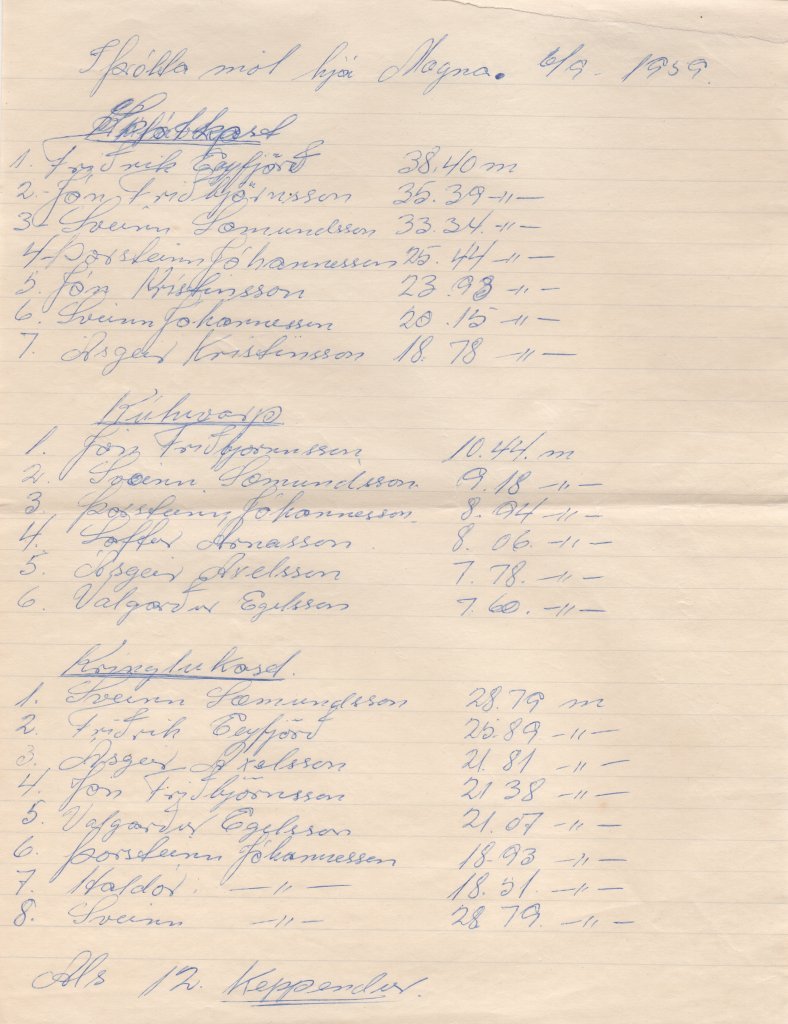 Iþrótta mót hjá Magna. 6/9. 1959.
Spjótkast
1. Friðrik Eyfjörð 38.40 m
2.- Jón Friðbjörnsson 35.39 -"-
3- Sveinn Sæmundsson 33.34. -"-
4- Þorsteinn Jóhannessen 25.44 -"-
5. Jón Kristinsson 23.93 -"-
6. Sveinn Jóhannessen 20.15 -"-
7. Ásgeir Kristinsson 18.78 -"-
Kúluvarp
1. Jón Friðbjörnsson 10.44. m
2. Sveinn Sæmundsson. 9.18 -"-
3. Þorsteinn Jóhannesson. 8.94 -"-
4. Softer Arnasson. 8.06. -"-
5. Ásgeir Axelsson 7.78. -"-
6. Valgarður Egelsson 7.60. -"-
Kringlukast.
1. Sveinn Sæmundsson 28.79 m
2. Friðrik Eyfjörð 25.89 -"-
3. Ásgeir Axelsson 21.81 -"-
4. Jón Friðbjörnsson 21 38 -"-
5. Valgarður Egelsson 21.07 -"-
6. Þorsteinn Jóhannessen 18.93 -"-
7. Haldór. -"- 18.51. -"-
8. Sveinn -"- 28 79. -"-
Als 12. Keppendur.